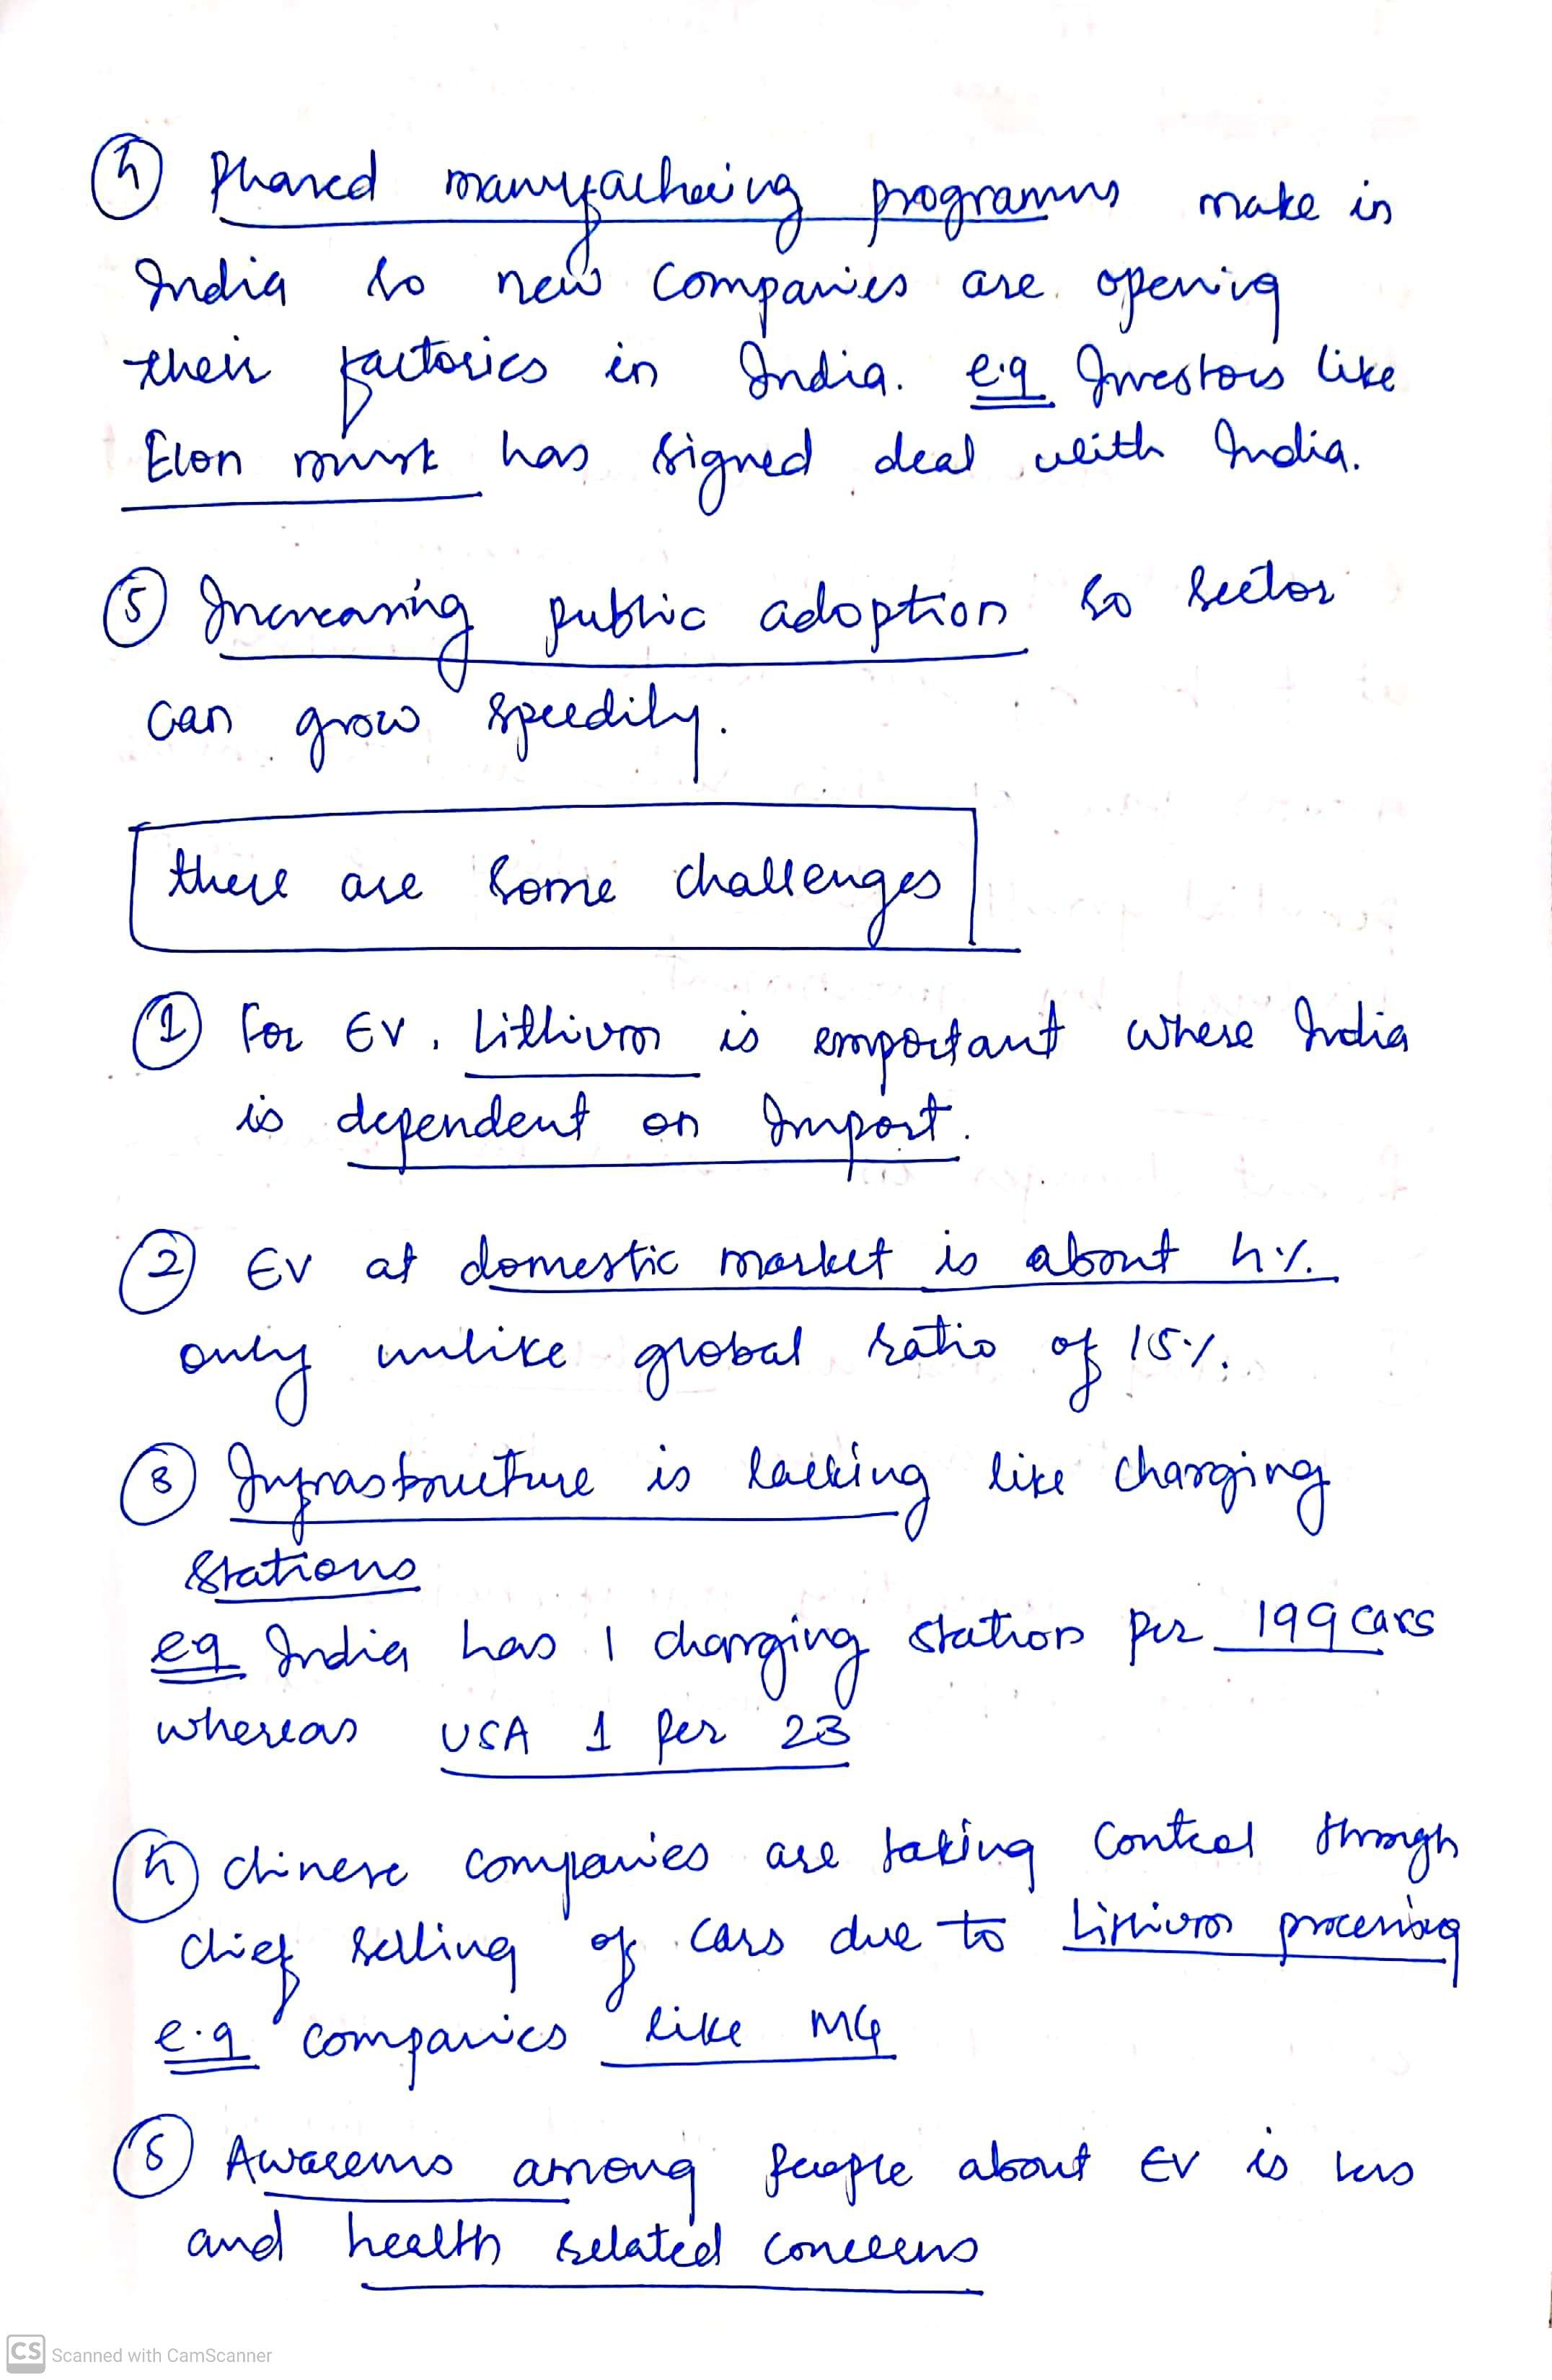 ④ Phased manufacturing programms make in
India so new companies are opening
their factories in India. e.g Investors like
Elon musk has signed deal with India.
⑤ Increasing public adoption so sector
can grow speedily.
there are some challenges
① For EV, Lithium is emportant where India
is dependent on Import.
② EV at domestic market is about 4%
only unlike global ratio of 15%.
③ Infrastructure is lacking like charging
stations
eg India has 1 charging station per 199 cars
whereas USA 1 per 23
④ chinese companies are taking control through
chief selling of cars due to Lithium processing
e.g companies like MG
⑤ Awareness among people about EV is less
and health related concerns
CS Scanned with CamScanner